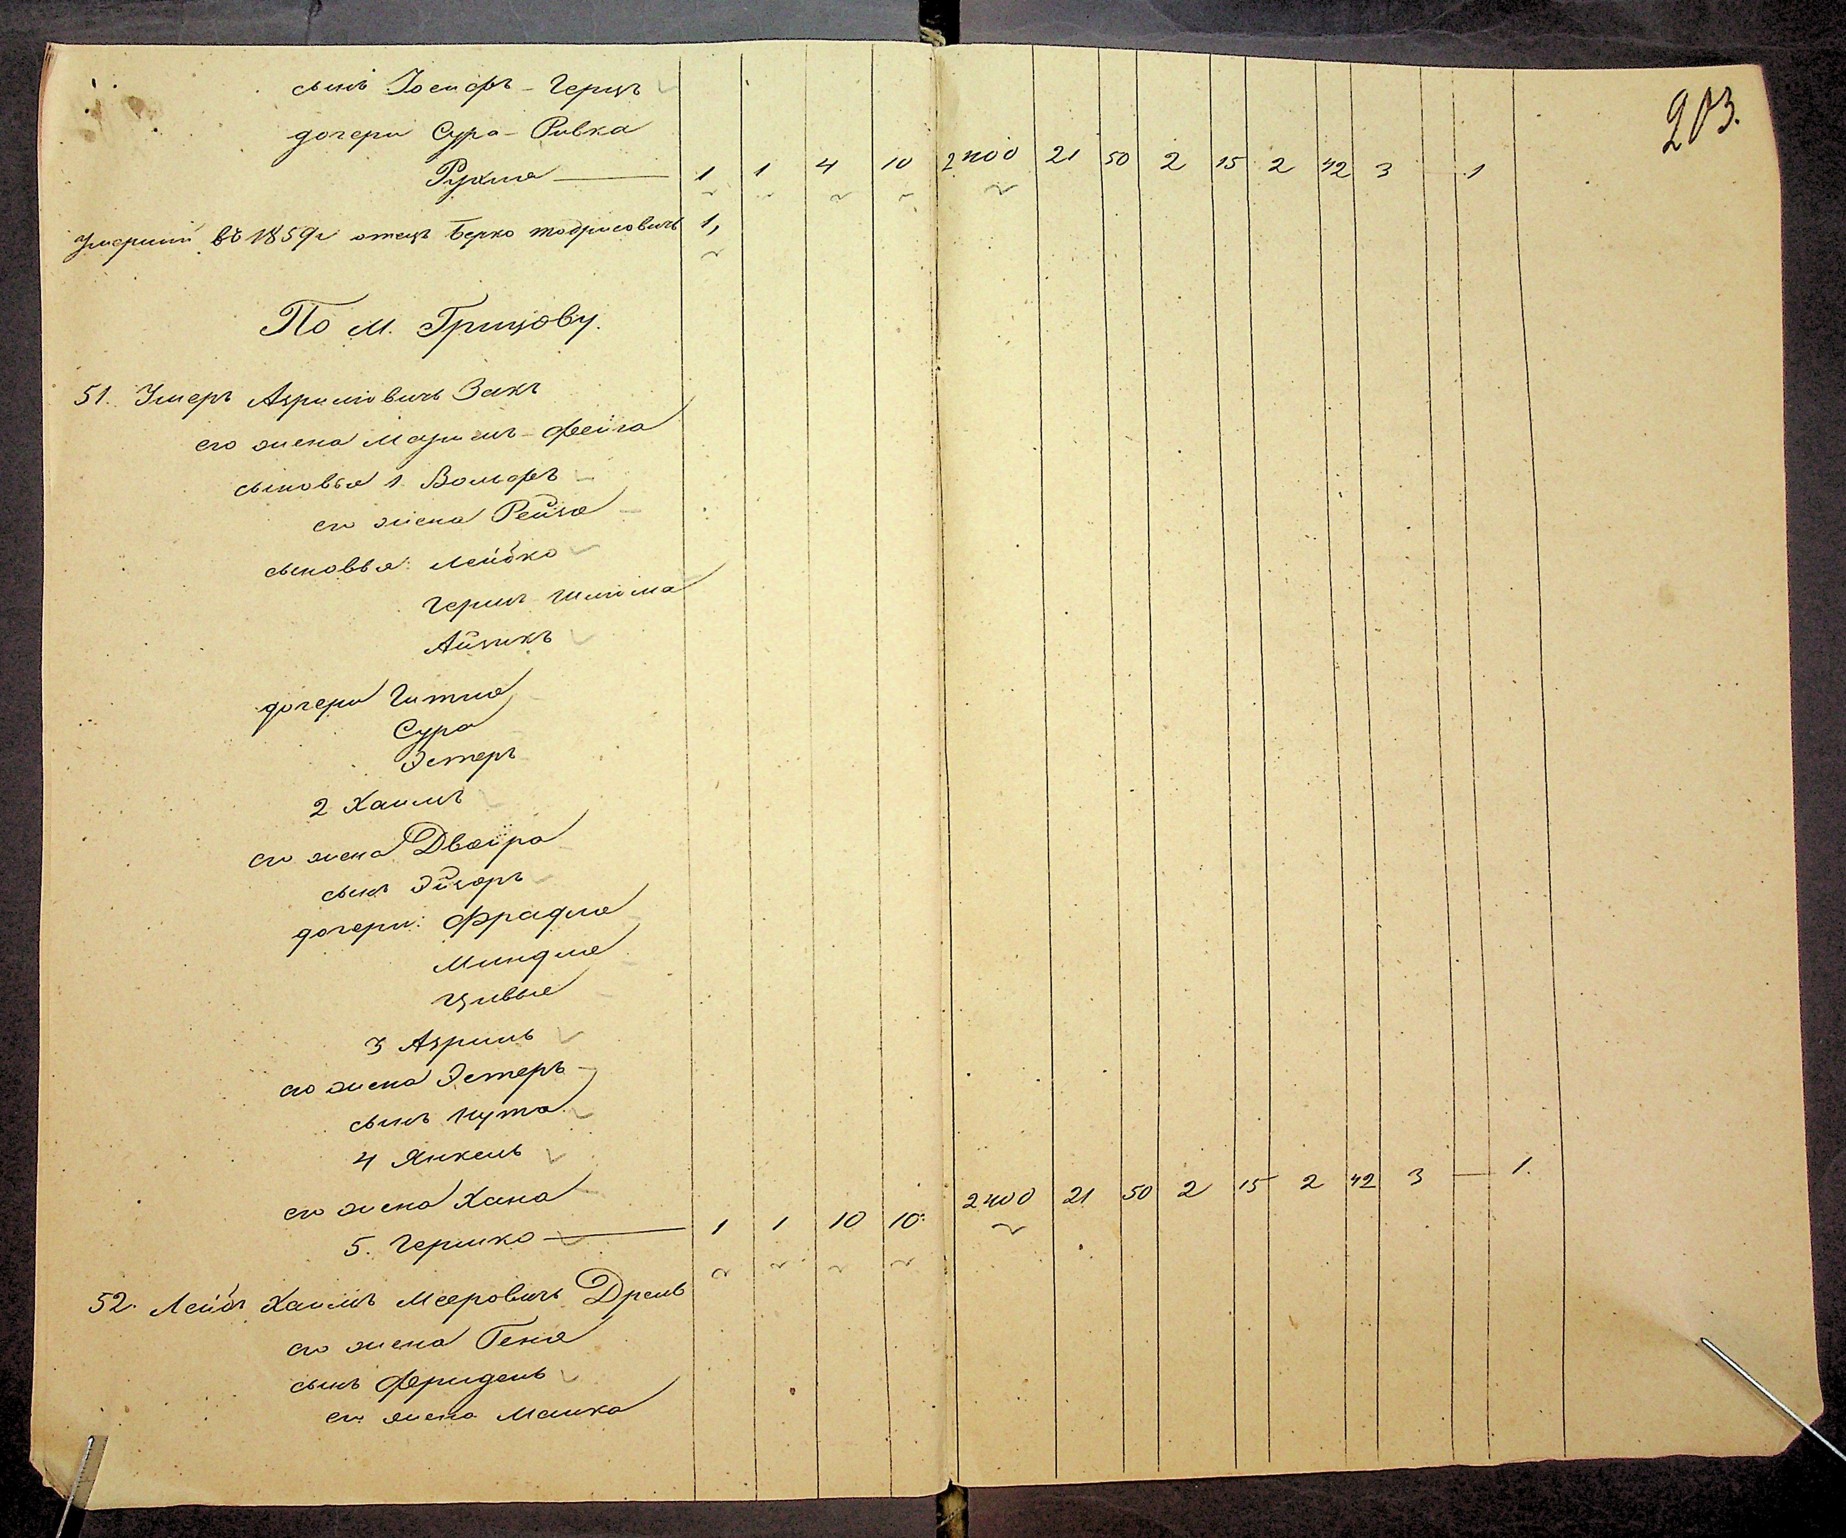 203.
сынъ Іосифъ - Герцъ
дочери Сура - Ривка
Рухля — 1 1 4 10 2400 21 50 2 15 2 42 3 — 1
Умершій въ 1859 г отецъ Берко 1,
По м. Грицову.
51. Умеръ Азриловичъ Закъ
его жена Маріемъ - Фейга
сыновья 1 Вольфъ
его жена Рейзя
сыновья: Лейбко
Гершъ Шлома
Айзикъ
дочери Гитля
Сура
Эстеръ
2 Хаимъ
его жена Двойра
сынъ
дочери: Фрадля
Миндля
Цивья
3 Азриль
его жена Эстеръ
сынъ Нута
4 Янкель
его жена Хана
5. Гершко — 1 1 10 10 2400 21 50 2 15 2 42 3 — 1.
52. Лейбъ Хаимъ Мееровичъ
его жена Геня
сынъ Фридель
его жена Малка